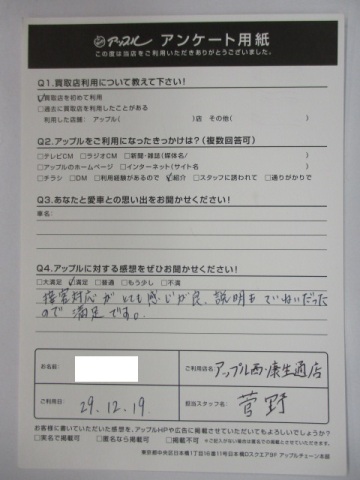 アップル アンケート用紙
この度は当店をご利用いただきありがとうございました。
Q1.買取店利用について教えて下さい!
☑買取店を初めて利用
□過去に買取店を利用したことがある
利用した店舗:アップル( )店 その他( )
Q2.アップルをご利用になったきっかけは?(複数回答可)
□テレビCM □ラジオCM □新聞・雑誌(媒体名/ )
□アップルのホームページ □インターネット(サイト名 )
□チラシ □DM □利用経験があるので ☑紹介 □スタッフに誘われて □通りがかりで
Q3.あなたと愛車との思い出をお聞かせください!
車名:
Q4.アップルに対する感想をぜひお聞かせください!
□大満足 ☑満足 □普通 □もう少し □不満
接客対応がとても感じが良、説明もていねいだった
ので満足です。
お名前:
ご利用店名: アップル西・康生通店
ご利用日: 29.12.19.
担当スタッフ名: 菅野
お客様に書いていただいた感想を、アップルHPや広告に掲載させていただいてもよろしいでしょうか?
□実名で掲載可 □匿名なら掲載可 □掲載不可 ※ご記入がない場合は匿名での掲載とさせていただきます。
東京都中央区日本橋1丁目16番11号日本橋Dスクエア9F アップルチェーン本部